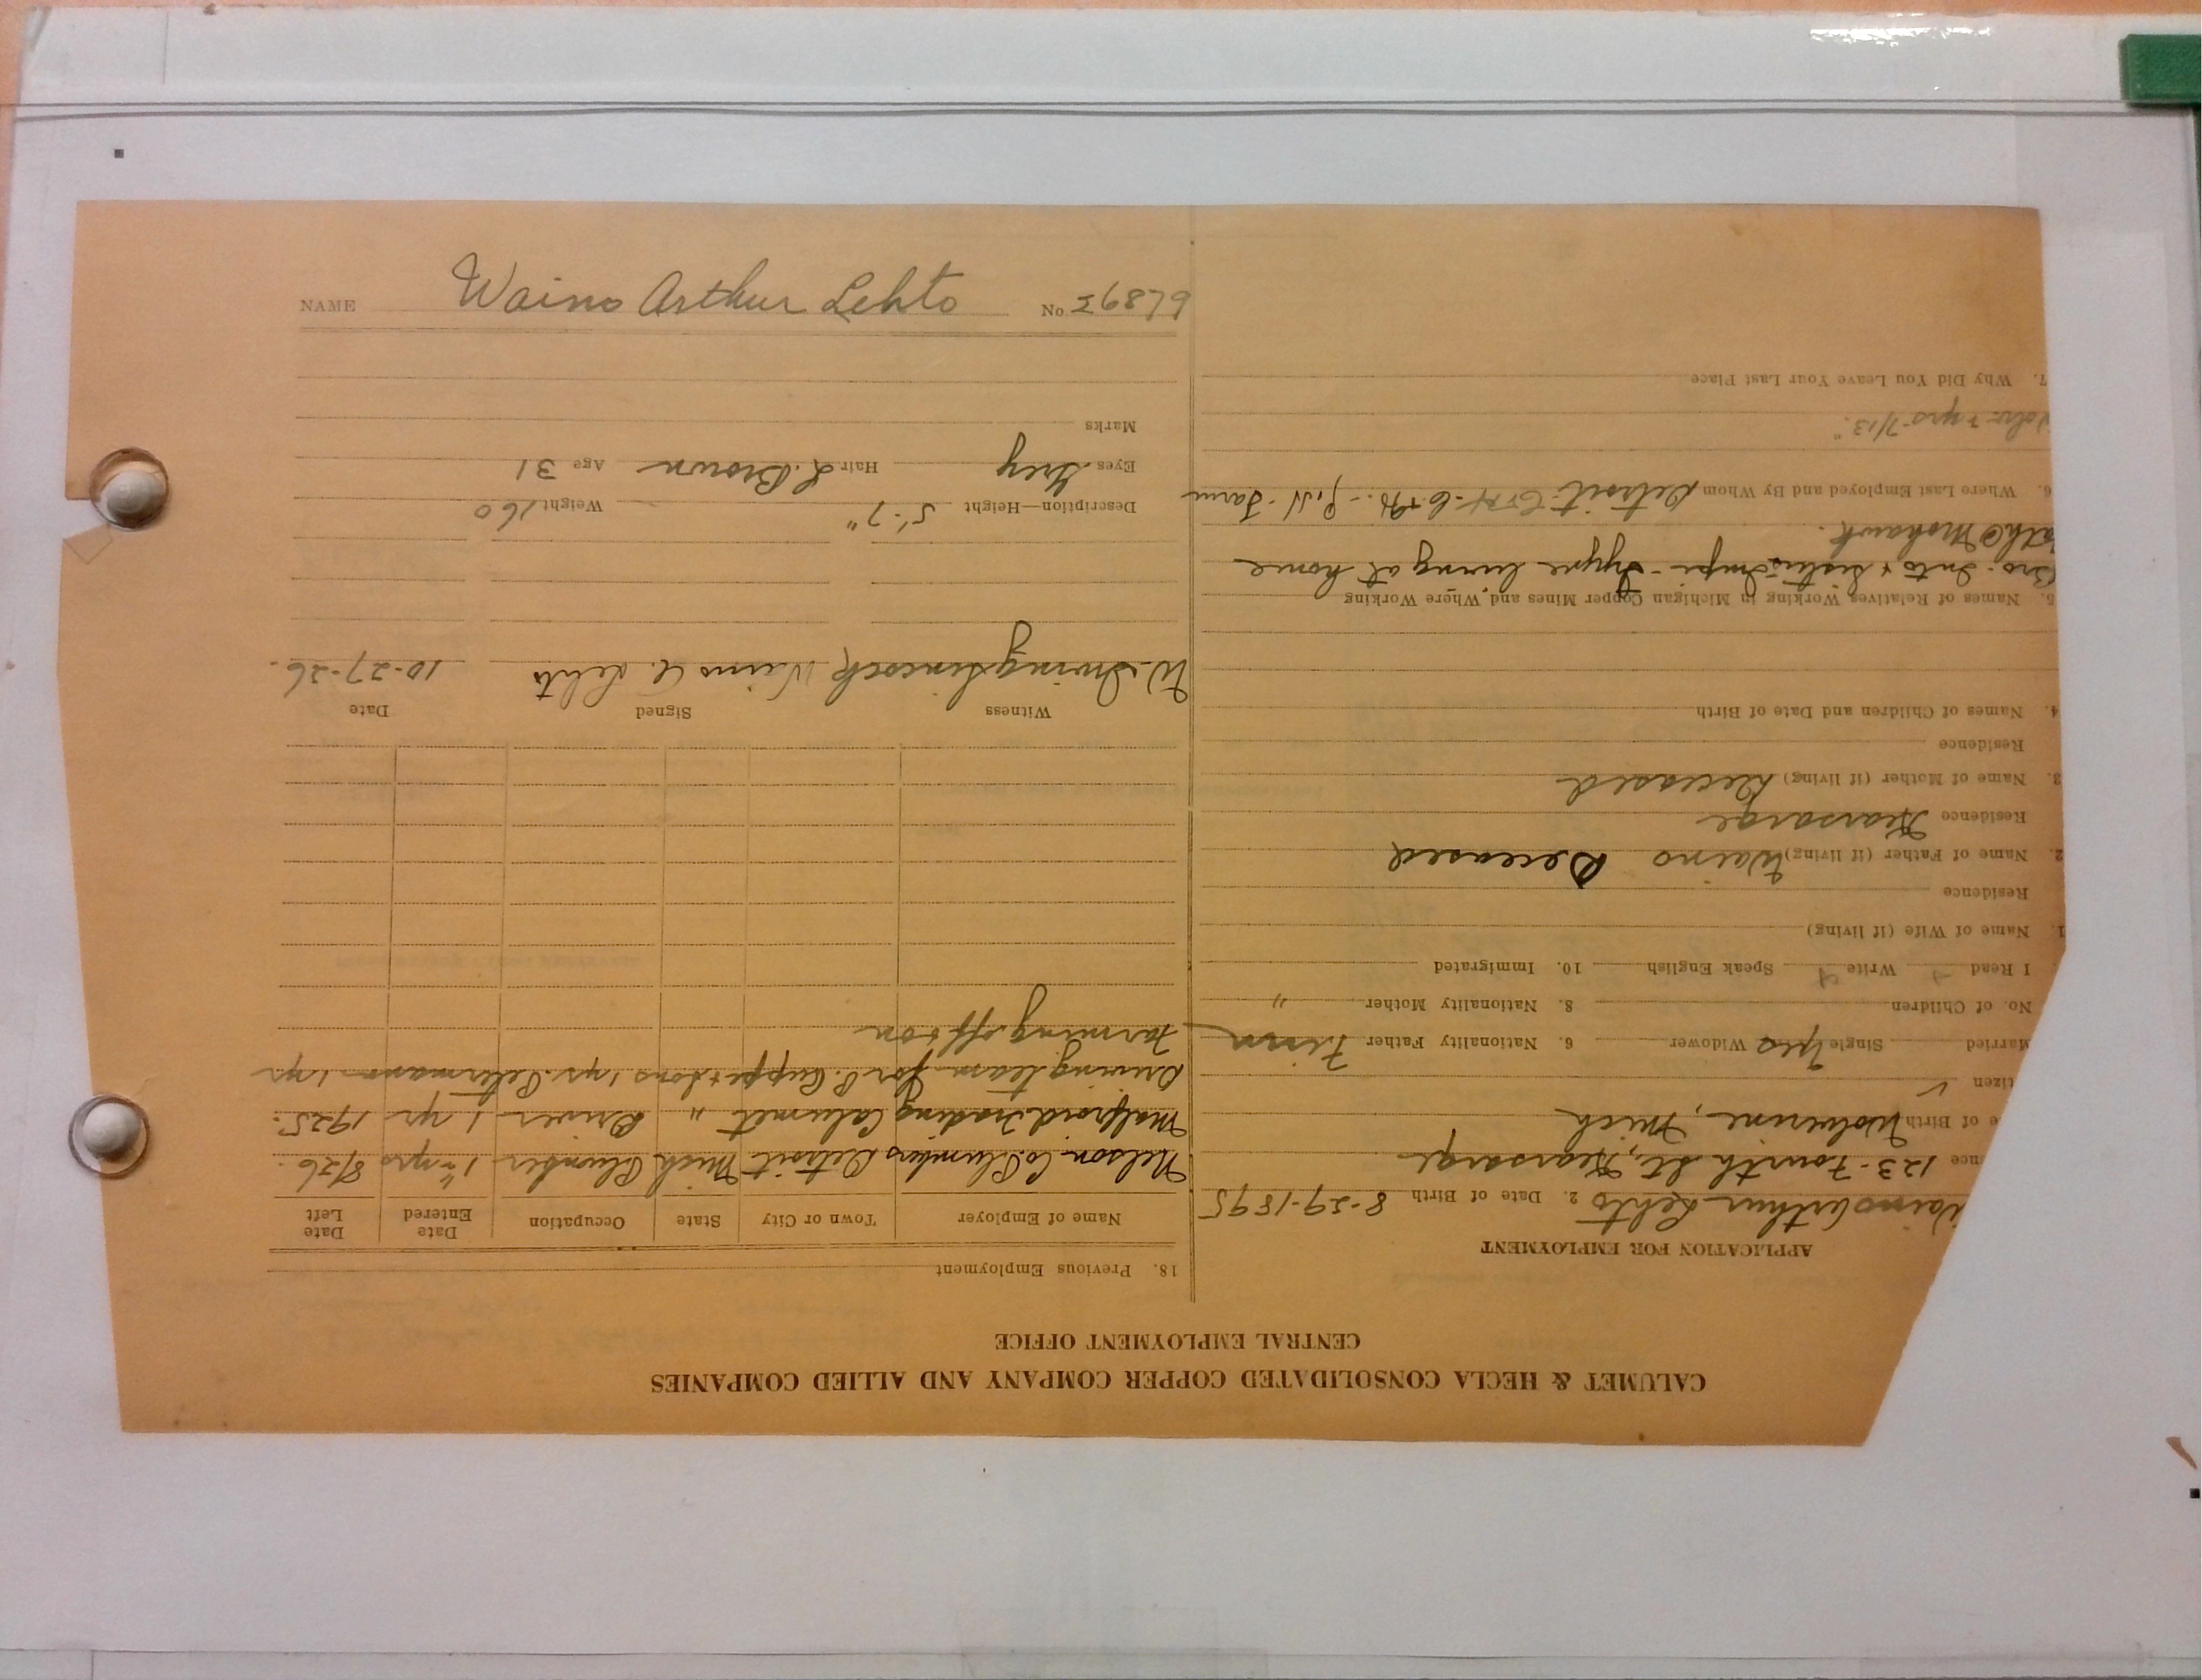 CALUMET & HECLA CONSOLIDATED COPPER COMPANY AND ALLIED COMPANIES
CENTRAL EMPLOYMENT OFFICE
APPLICATION FOR EMPLOYMENT
Waino Arthur Lehto 2. Date of Birth 8-29-1895
nce 123-Fourth St, Kearsarge
e of Birth Wolverine, Mich
tizen ✓
Married Single Yes Widower 6. Nationality Father Finn
No. of Children 8. Nationality Mother "
I Read Write Speak English 10. Immigrated
1. Name of Wife (if living)
Residence
2. Name of Father (if living) Waino Deceased
Residence Kearsarge
3. Name of Mother (if living) Deceased
Residence
4. Names of Children and Date of Birth
5. Names of Relatives Working in Michigan Copper Mines and Where Working
Bro. & living at home
@ Mohawk.
6. Where Last Employed and By Whom Detroit - Farm
yrs 7/13"
7. Why Did You Leave Your Last Place
18. Previous Employment
Name of Employer Town or City State Occupation Date Entered Date Left
Nelson Co. Plumbers Detroit Mich Plumber 1 yrs 8/26.
Trading Calumet " Driver 1 yr 1925.
Driving team for P. & Sons 1 yr. 1 yr
Farming off & on
Witness Signed Date
W. Irving Waino A. Lehto 10-27-26.
Description—Height 5'-7" Weight 160
Eyes Grey Hair L. Brown Age 31
Marks
NAME Waino Arthur Lehto
No.